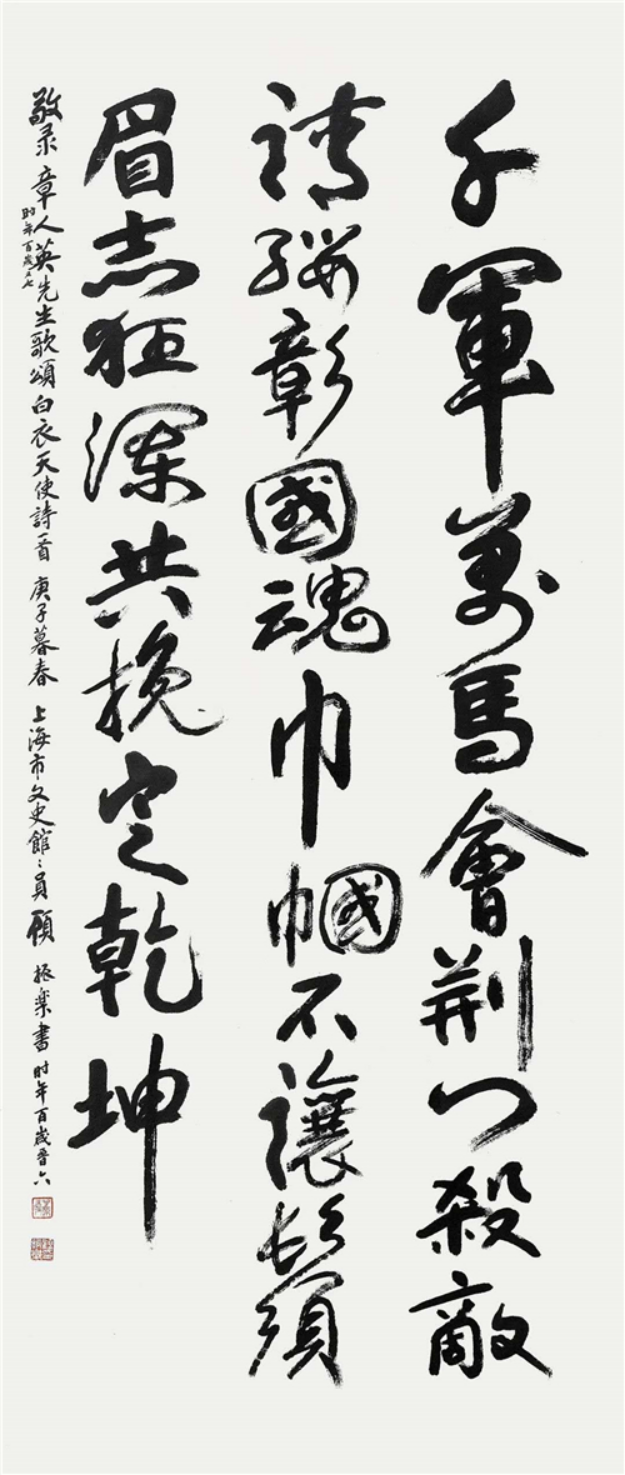 千軍萬馬會荆门殺敵
請纓彰國魂巾幗不讓鬚
眉志狂瀾共挽定乾坤
敬录章人英先生歌頌白衣天使詩一首 庚子暮春 上海市文史館〻員顧振樂書时年百歲晋六
时年百歲晋七